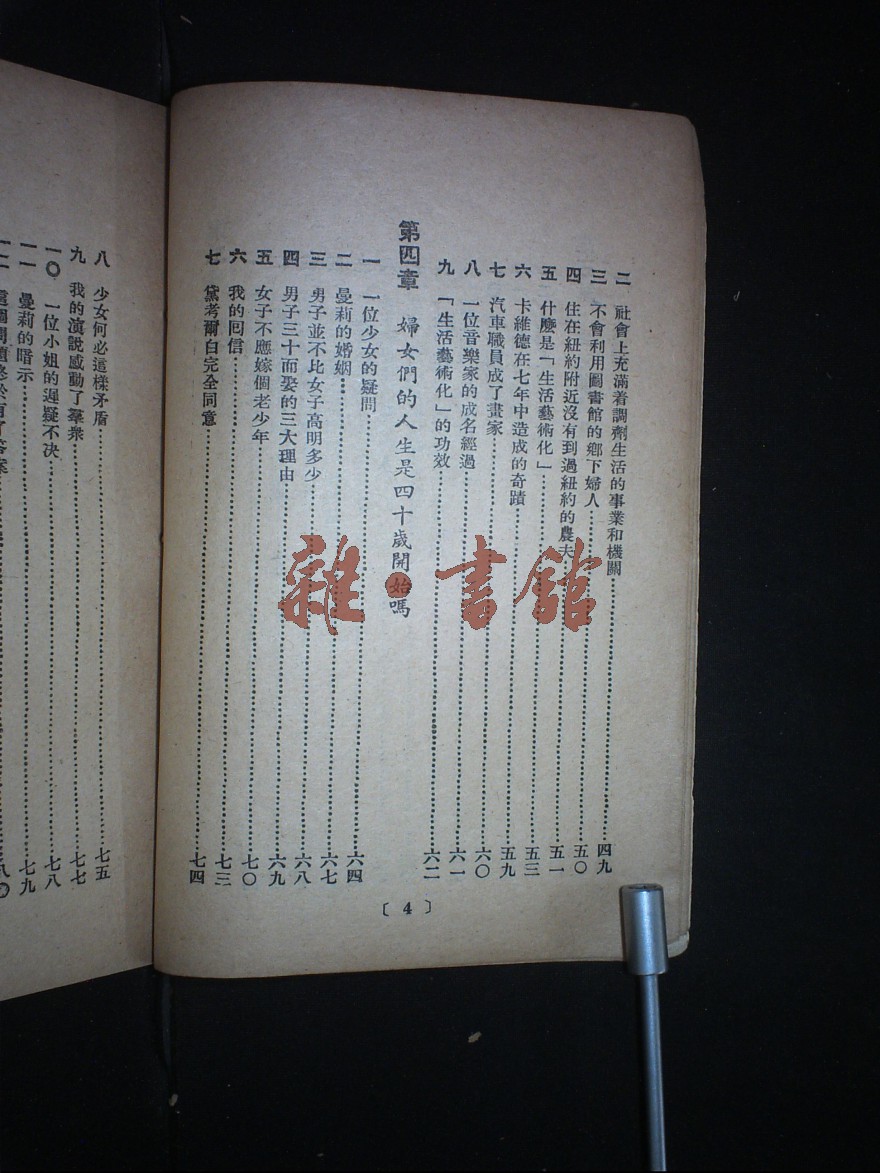 二 社會上充滿着調劑生活的事業和機關 四九
三 不會利用圖書館的鄉下婦人 五〇
四 住在紐約附近沒有到過紐約的農夫 五一
五 什麼是「生活藝術化」 五三
六 卡維德在七年中造成的奇蹟 五九
七 汽車職員成了畫家 六〇
八 一位音樂家的成名經過 六一
九 「生活藝術化」的功效 六二
第四章 婦女們的人生是四十歲開始嗎
一 一位少女的疑問 六四
二 曼莉的婚姻 六七
三 男子並不比女子高明多少 六八
四 男子三十而娶的三大理由 六九
五 女子不應嫁個老少年 七〇
六 我的囘信 七三
七 黛考爾白完全同意 七四
〔4〕
八 少女何必這樣矛盾 七五
九 我的演說感動了羣衆 七七
一〇 一位小姐的遲疑不决 七八
一一 曼莉的暗示 七九
雜·書館